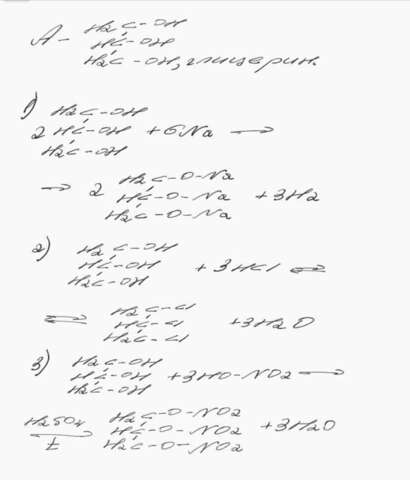 H₂C-OH
A - HC-OH
H₂C-OH, глицерин.
1) H₂C-OH
2 HC-OH + 6Na →
H₂C-OH
H₂C-O-Na
→ 2 HC-O-Na + 3H₂
H₂C-O-Na
2) H₂C-OH
HC-OH + 3HCl ⇌
H₂C-OH
H₂C-Cl
⇌ HC-Cl + 3H₂O
H₂C-Cl
3) H₂C-OH
HC-OH + 3HO-NO₂ →
H₂C-OH
H₂SO₄ H₂C-O-NO₂
→ HC-O-NO₂ + 3H₂O
t H₂C-O-NO₂